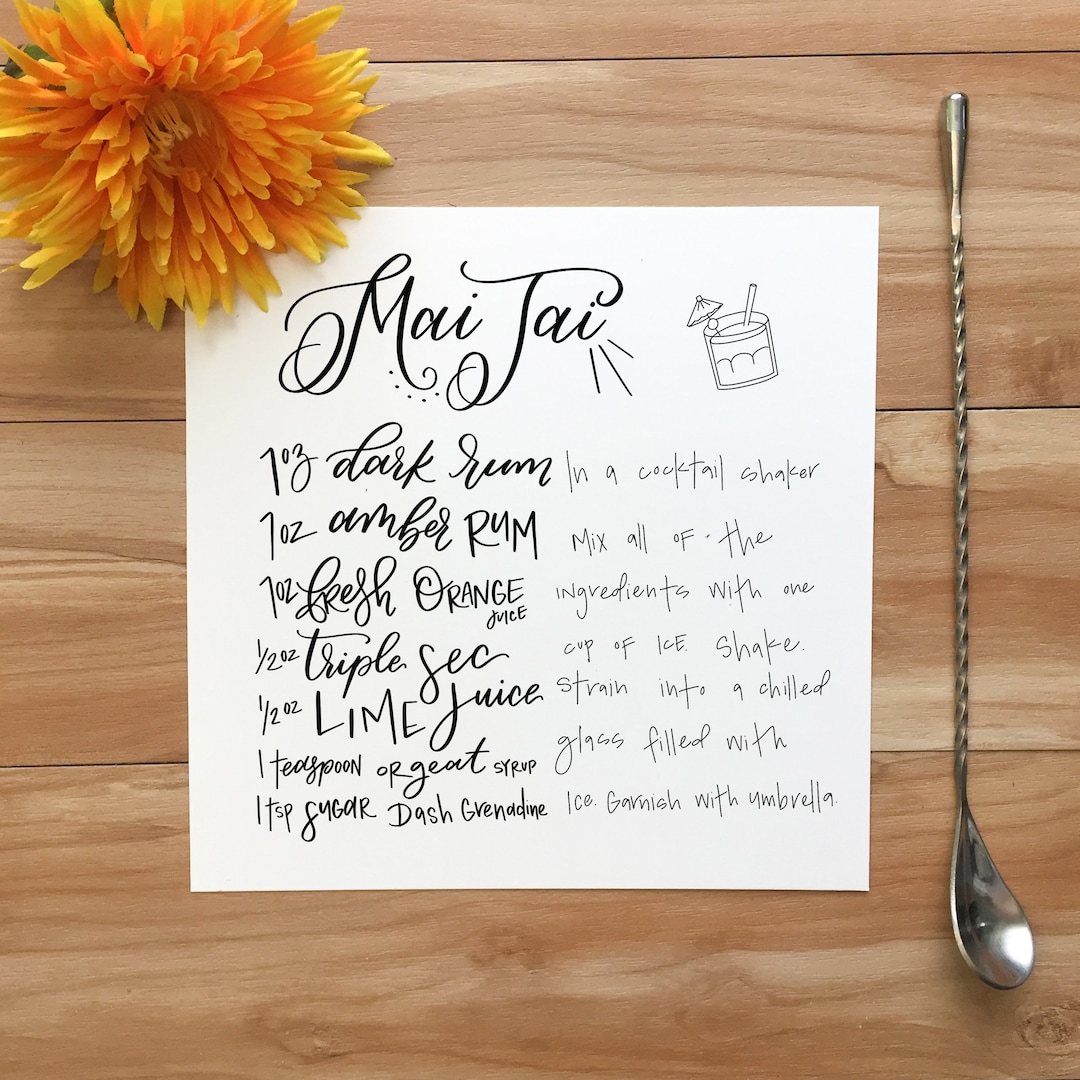 Mai Tai
1oz dark rum
1oz amber RUM
1oz fresh ORANGE
JUICE
1/2 oz triple sec
1/2 oz LIME juice
1 teaspoon orgeat SYRUP
1 tsp SUGAR Dash Grenadine
In a cocktail shaker
Mix all OF the
ingredients with one
cup OF ICE. Shake.
Strain into a chilled
glass filled with
Ice. Garnish with umbrella.